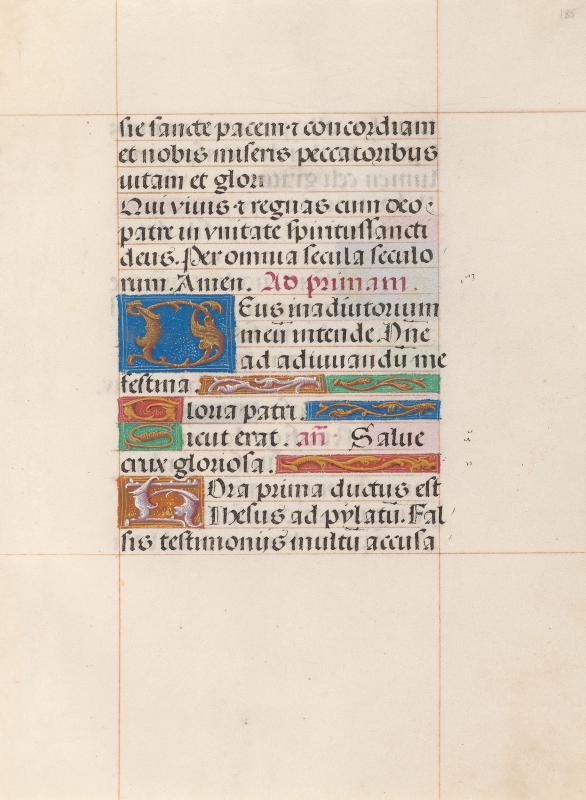 185
sie sancte pacem ⁊ concordiam
et nobis miseris peccatoribus
uitam et glori
Qui viuis ⁊ regnas cum deo
patre in vnitate spiritussancti
deus. Per omnia secula seculo
rum. Amen. Ad primam.
DEus in adiutorium
meū intende. Dne
ad adiuuandū me
festina.
Gloria patri.
Sicut erat. an̄ Salue
crux gloriosa.
HOra prima ductus est
Ihesus ad pylatū. Fal
sis testimonijs multū accusa